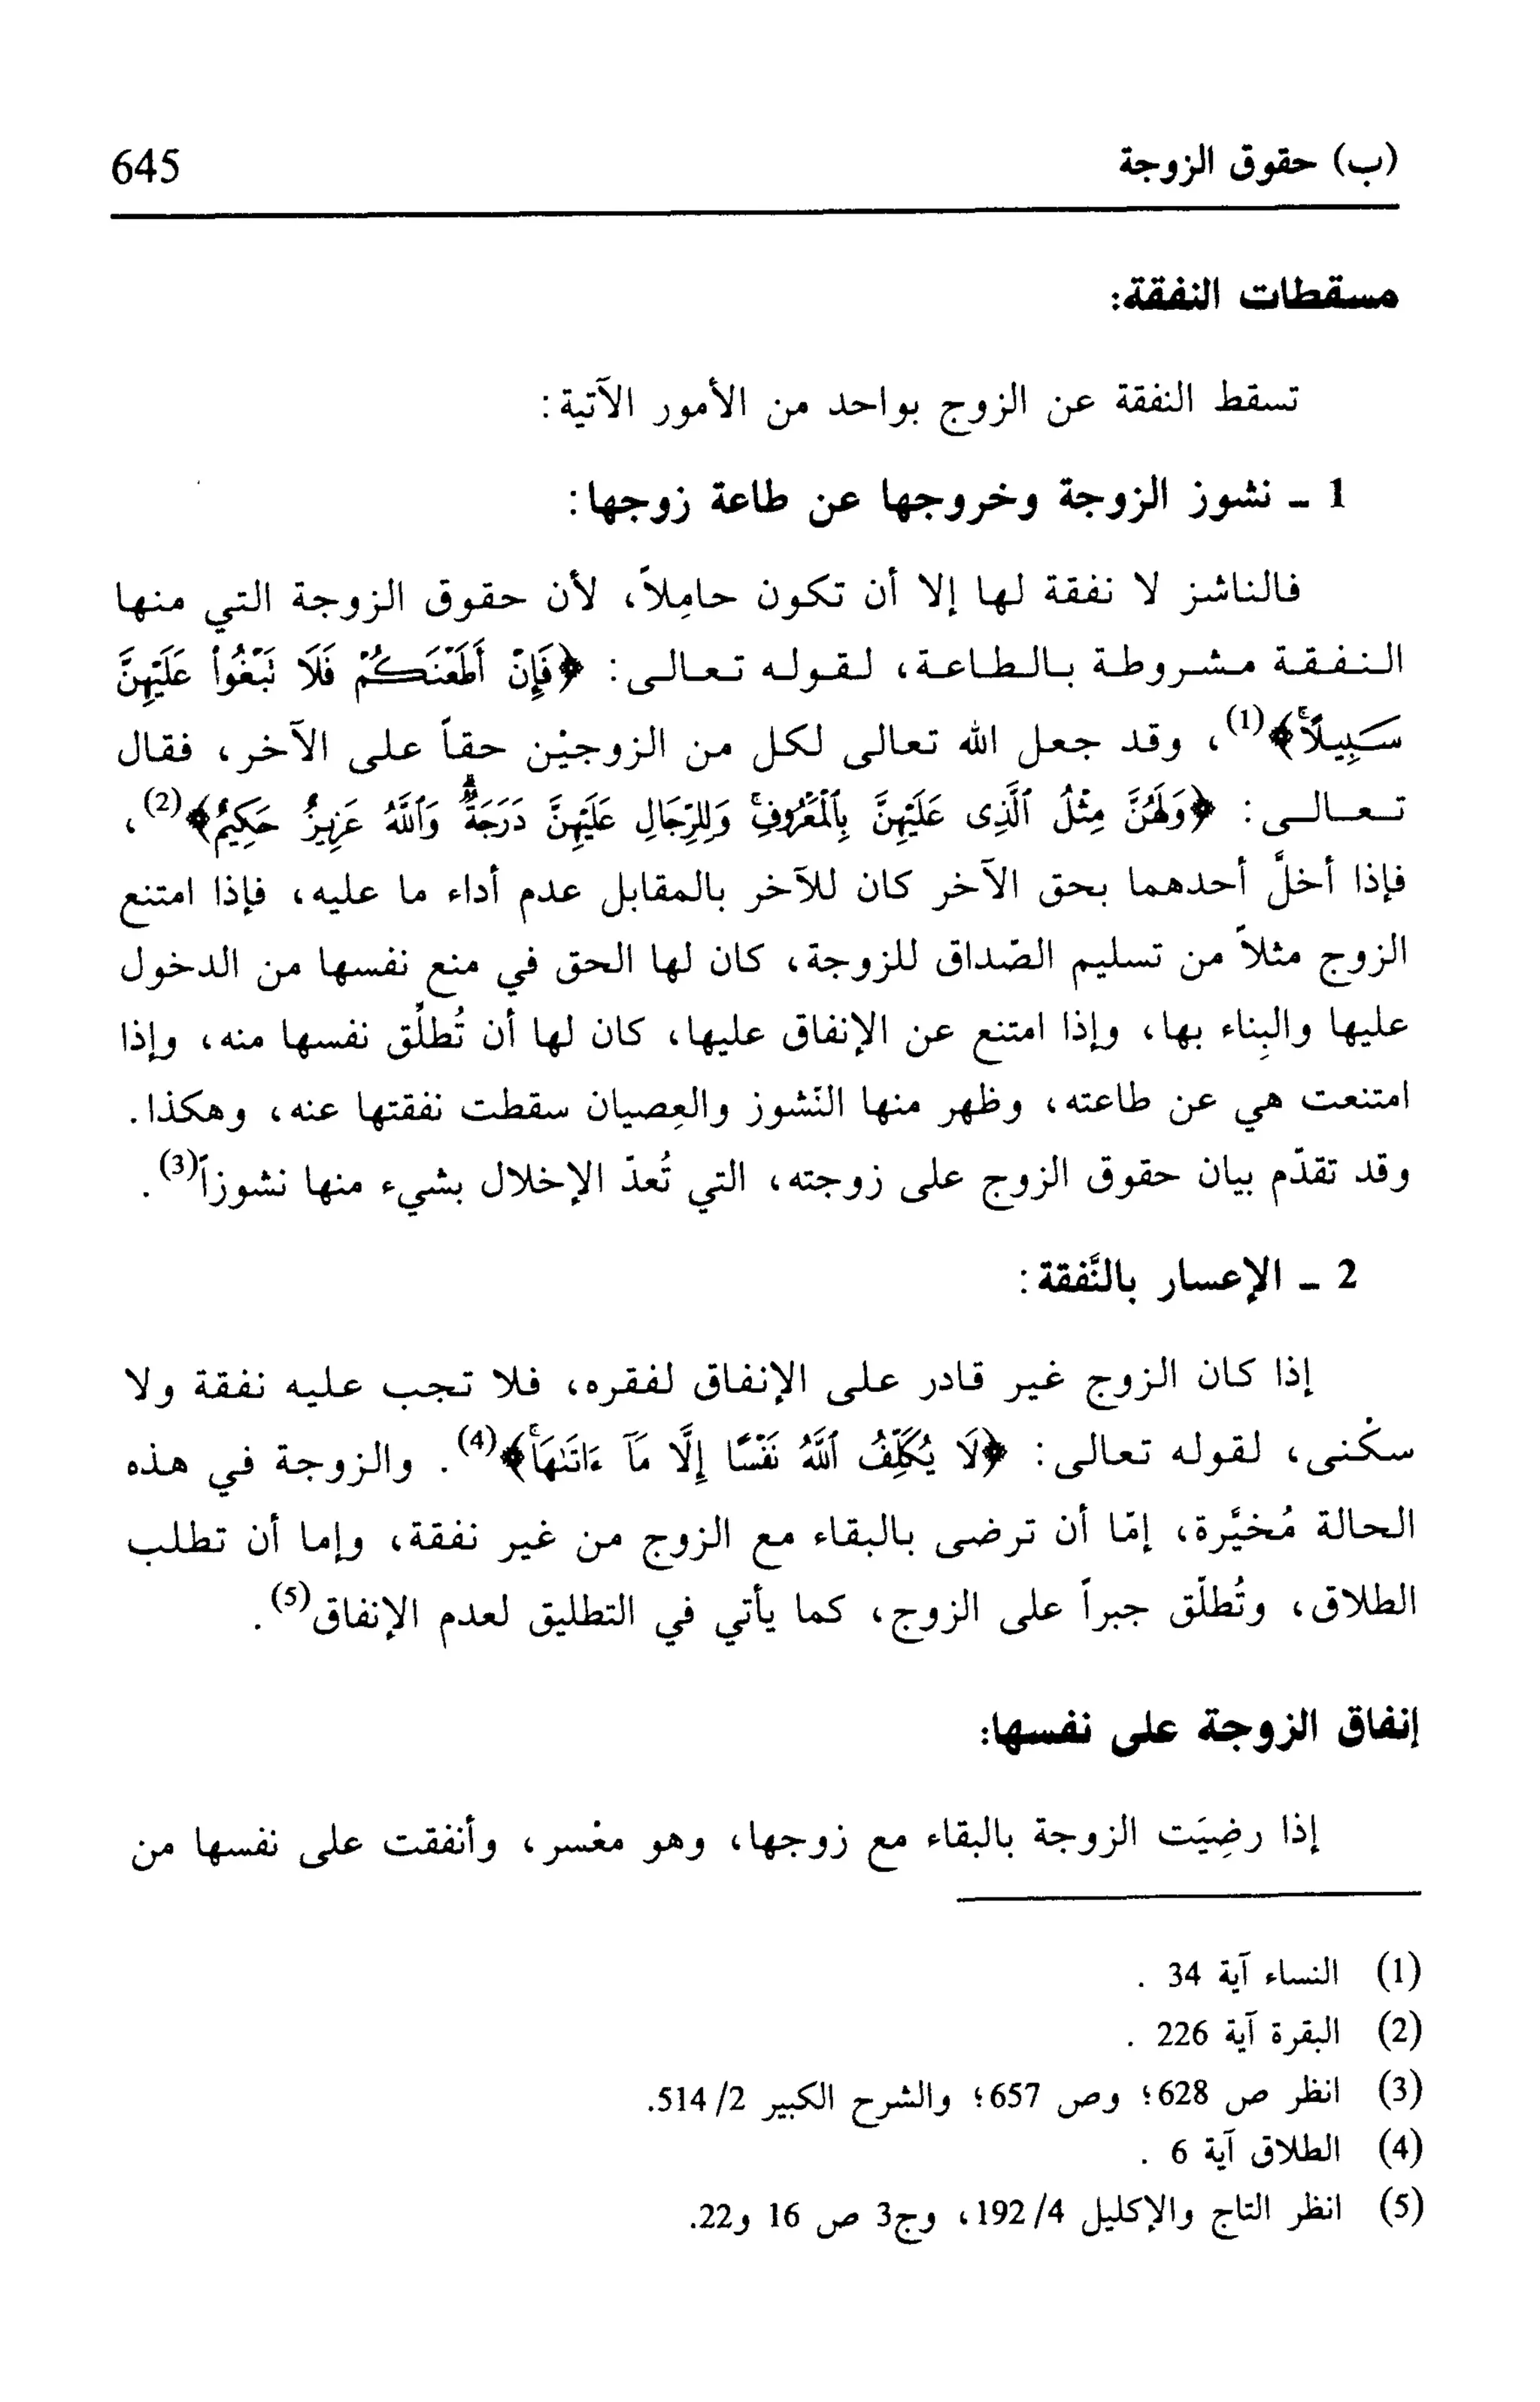 (ب) حقوق الزوجة 645
مسقطات النفقة:
تسقط النفقة عن الزوج بواحد من الأمور الآتية:
1 - نشوز الزوجة وخروجها عن طاعة زوجها:
فالناشز لا نفقة لها إلا أن تكون حامِلاً، لأن حقوق الزوجة التي منها
النفقة مشروطة بالطاعة، لقوله تعالى: ﴿فَإِنْ أَطَعْنَكُمْ فَلَا تَبْغُوا۟ عَلَيْهِنَّ
سَبِيلًا﴾(1)، وقد جعل الله تعالى لكل من الزوجيْن حقاً على الآخر، فقال
تعالى: ﴿وَلَهُنَّ مِثْلُ ٱلَّذِى عَلَيْهِنَّ بِٱلْمَعْرُوفِ وَلِلرِّجَالِ عَلَيْهِنَّ دَرَجَةٌ وَٱللَّهُ عَزِيزٌ حَكِيمٌ﴾(2)،
فإذا أخلَّ أحدهما بحق الآخر كان للآخر بالمقابل عدم أداء ما عليه، فإذا امتنع
الزوج مثلاً من تسليم الصّداق للزوجة، كان لها الحق في منع نفسها من الدخول
عليها والبِناء بها، وإذا امتنع عن الإنفاق عليها، كان لها أن تُطلّق نفسها منه، وإذا
امتنعت هي عن طاعته، وظهر منها النّشوز والعِصيان سقطت نفقتها عنه، وهكذا.
وقد تقدّم بيان حقوق الزوج على زوجته، التي تُعدّ الإخلال بشيء منها نشوزاً(3).
2 - الإعسار بالنَّفقة:
إذا كان الزوج غير قادر على الإنفاق لفقره، فلا تجب عليه نفقة ولا
سكْنى، لقوله تعالى: ﴿لَا يُكَلِّفُ ٱللَّهُ نَفْسًا إِلَّا مَآ ءَاتَىٰهَا﴾(4). والزوجة في هذه
الحالة مُخيَّرة، إمّا أن ترضى بالبقاء مع الزوج من غير نفقة، وإما أن تطلب
الطلاق، وتُطلّق جبراً على الزوج، كما يأتي في التطليق لعدم الإنفاق(5).
إنفاق الزوجة على نفسها:
إذا رضِيَت الزوجة بالبقاء مع زوجها، وهو معْسر، وأنفقت على نفسها من
(1) النساء آية 34 .
(2) البقرة آية 226 .
(3) انظر ص 628؛ وص 657؛ والشرح الكبير 2/ 514.
(4) الطلاق آية 6 .
(5) انظر التاج والإكليل 4/ 192، وج3 ص 16 و22.